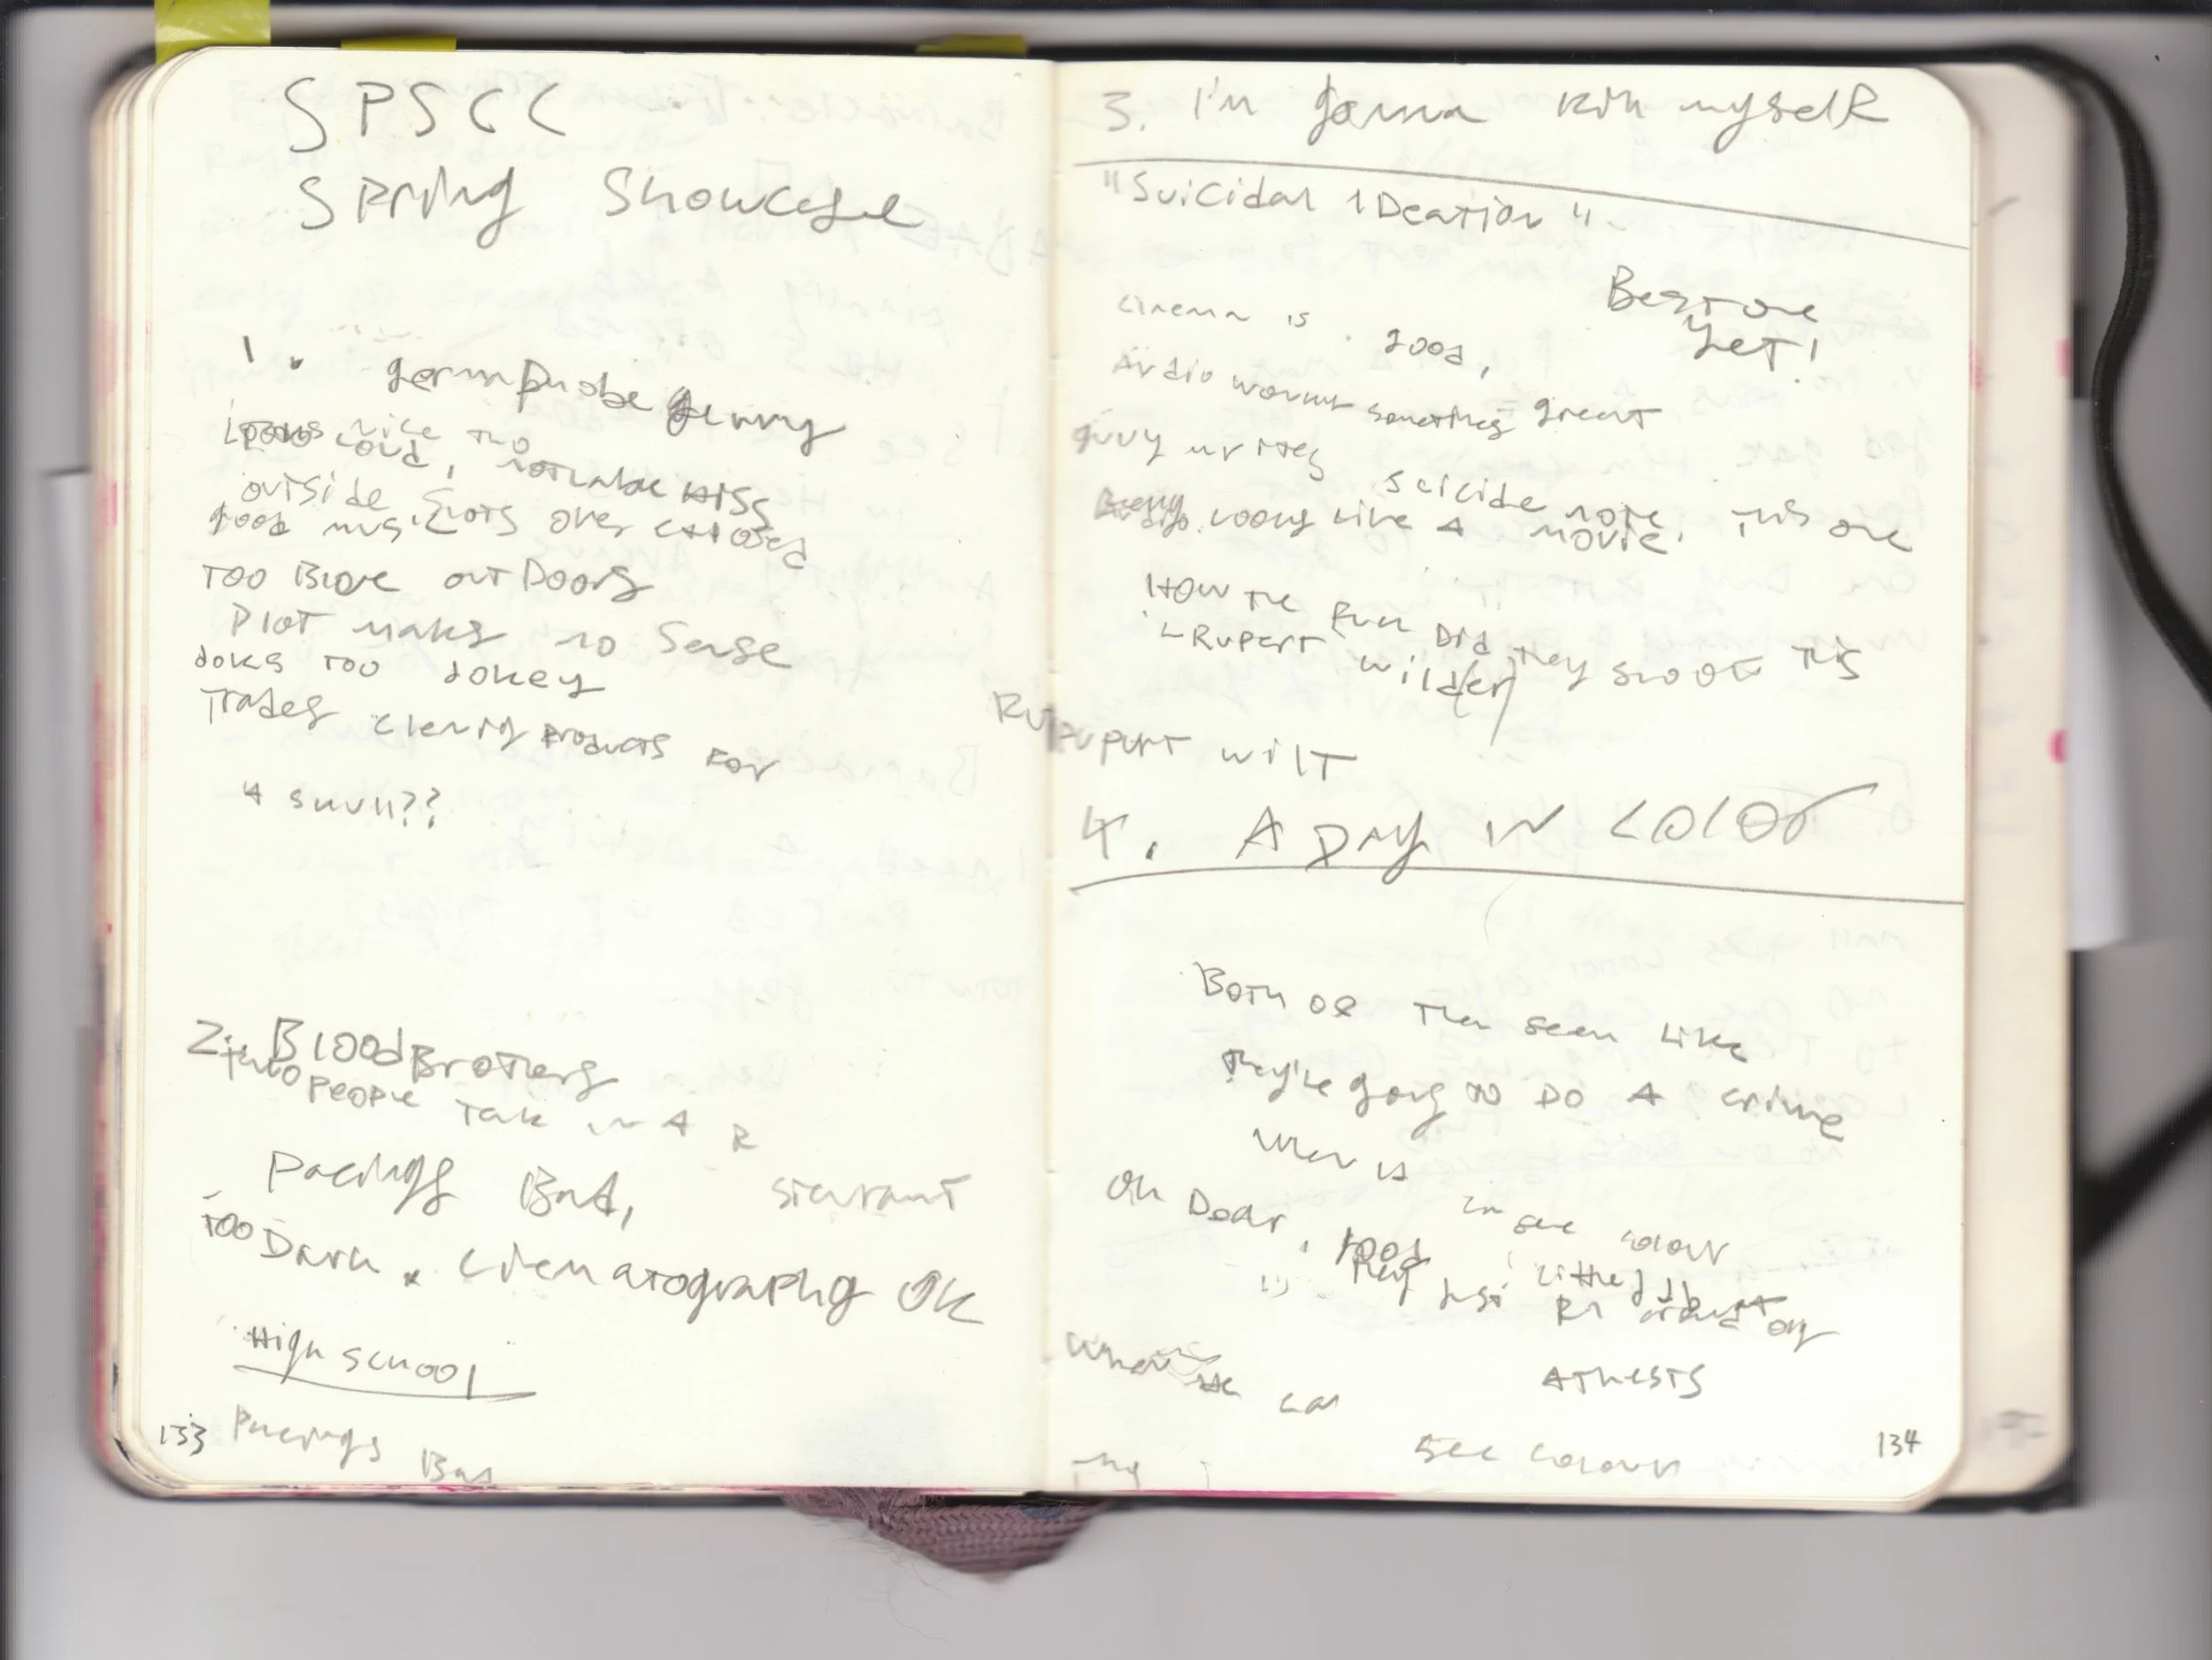 SPSCC
Spring Showcase
1. germaphobe Jenny
Looks nice tho
loud, notable hiss
outside shots over exposed
good music
Too Blue outDoors
Plot makes no Sense
Jokes Too Jokey
Trades cleaning products for
A skull??
2. Blood Brothers
two People Talk in A R
Pacings Bad,
Too Dark. Cinematography OK
High school
133
Pacings Bad
3. I'm gonna kill myself
"Suicidal IDeation"
Best one
Yet!
Cinema is good,
Audio works something great
guy writes suicide note. This one
looks like A movie.
How the Fuck Did they shoot This
Rupert Wilder
Rupert wilt
4. A Day in Color
Both of Them seem like
They're going to Do A crime
colour
Oh Dear,
They just
Atheists
see colour
134